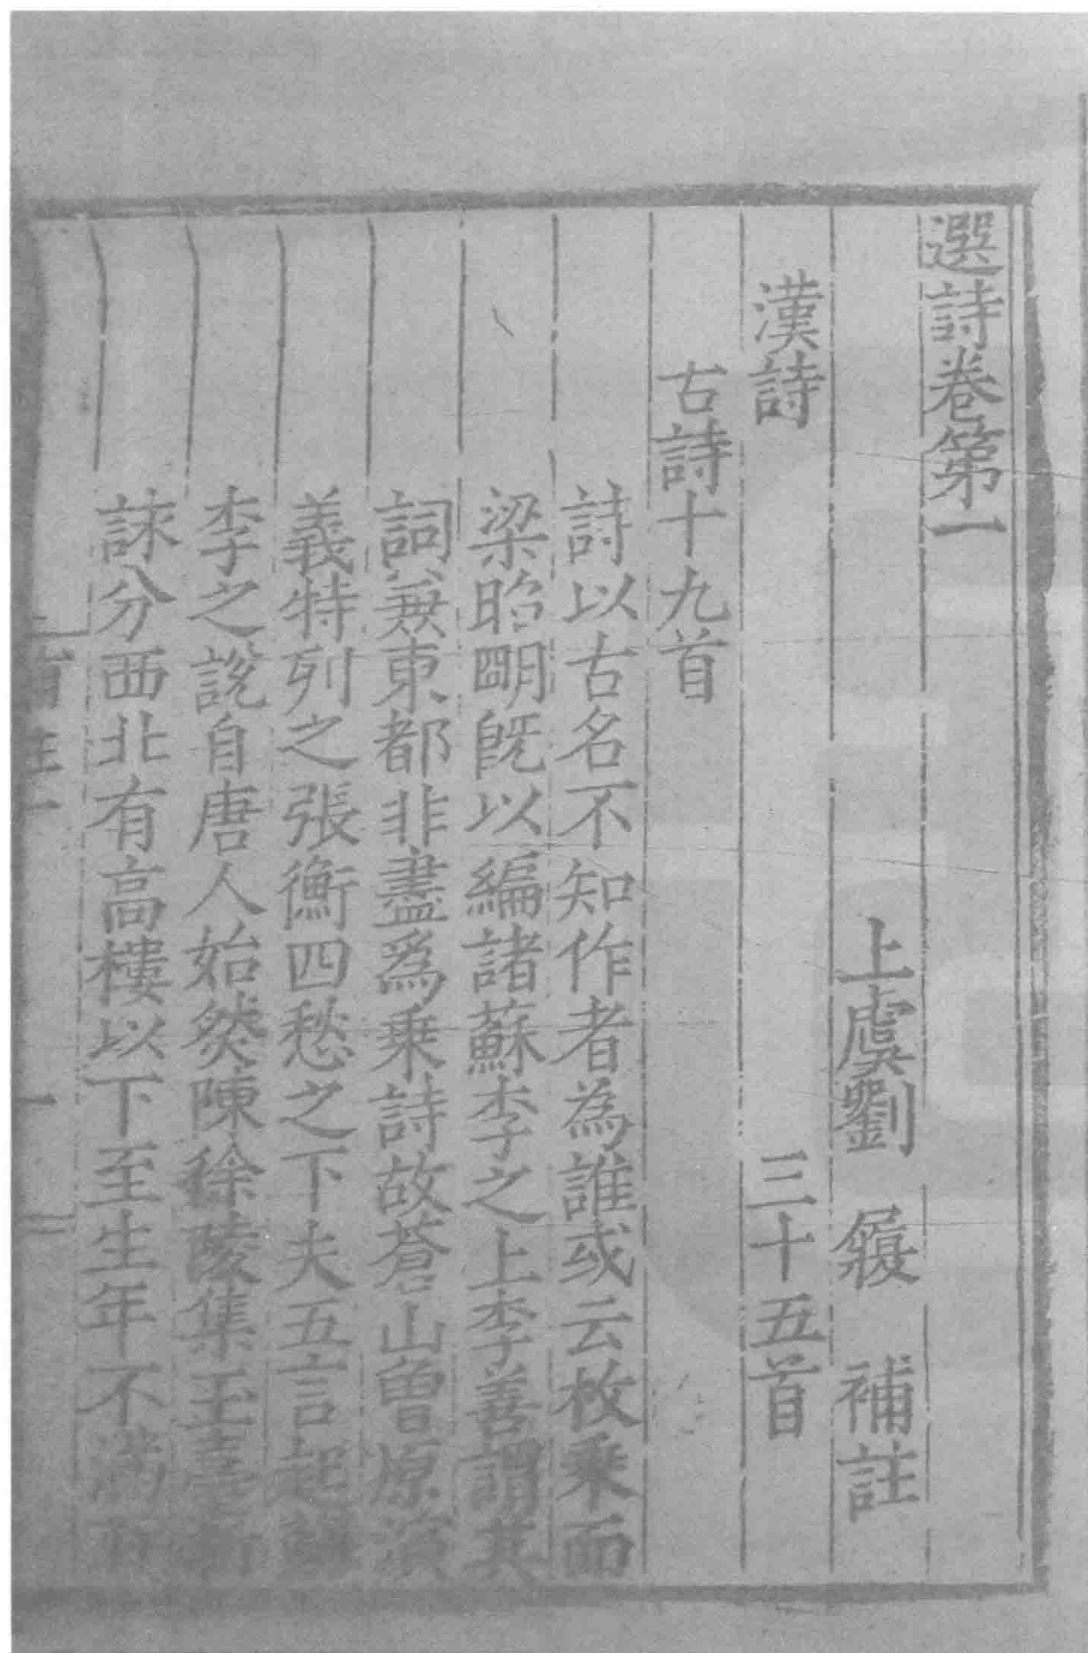 選詩卷第一
上虞劉 履 補註
漢詩 三十五首
古詩十九首
詩以古名不知作者為誰或云枚乗而
梁昭明旣以編諸蘇李之上李善謂其
詞兼東都非盡爲乗詩故蒼山曽原演
義特列之張衡四愁之下夫五言起
李之說自唐人始然陳徐陵集玉臺
詠分西北有高樓以下至生年不滿